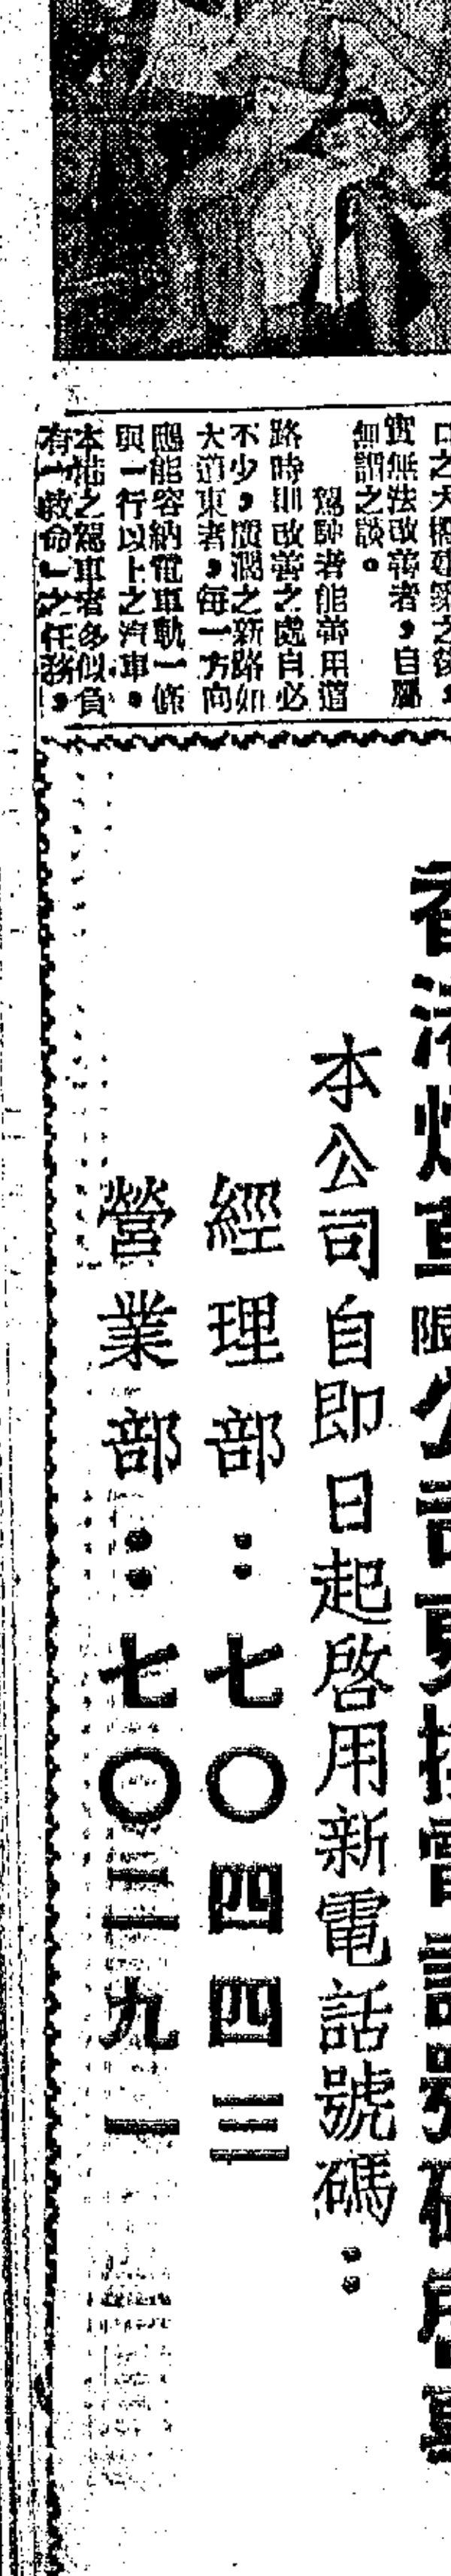 實無法改善者，自屬
無謂之談。
駕駛者能善用道
路時則改善之處自必
不少，廣濶之新路如
大道東者，每一方向
應能容納電車軌一條
與一行以上之汽車。
本地之駕車者多似負
有「救命」之任務，
本公司自即日起啓用新電話號碼：
經理部：七〇四四三
營業部：七〇二九一